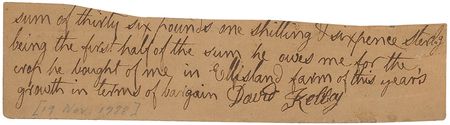 sum of thirty six pounds one shilling & sixpence Sterlg
being the first half of the sum he owes me for the
crop he bought of me in Ellisland farm of this year's
growth in terms of bargain David Kelley
[19 Nov. 1788]